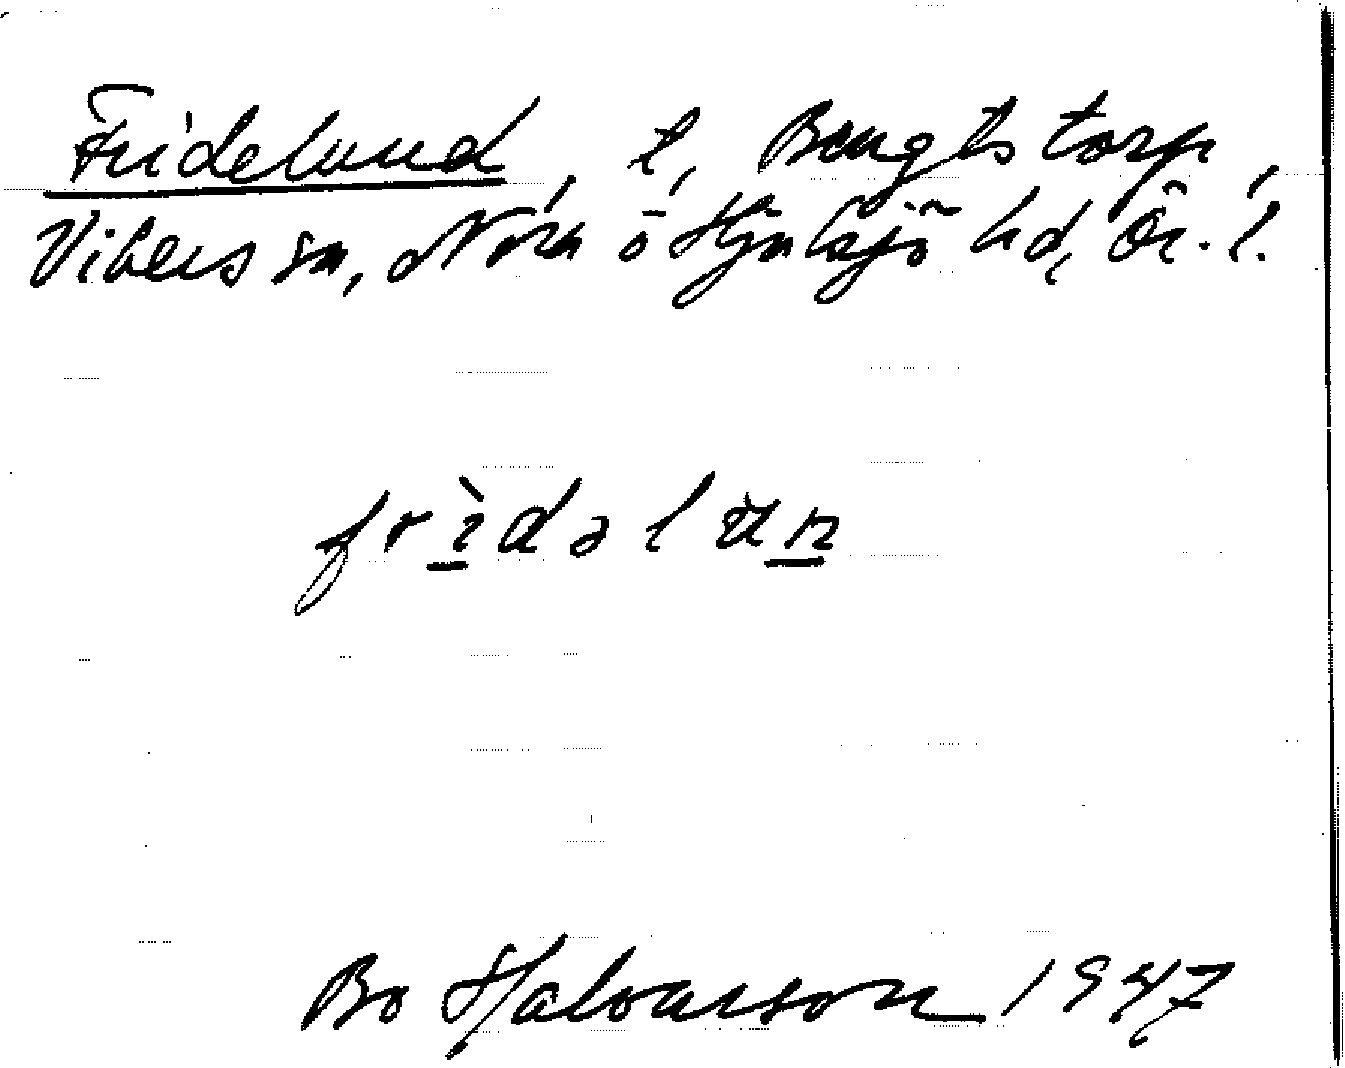 Fridelund, l, Bengtstorp,
Vikers sn, Nora o Hjulsjö hd, Ör. l.
frìdəlun
Bo Halvarson 1947